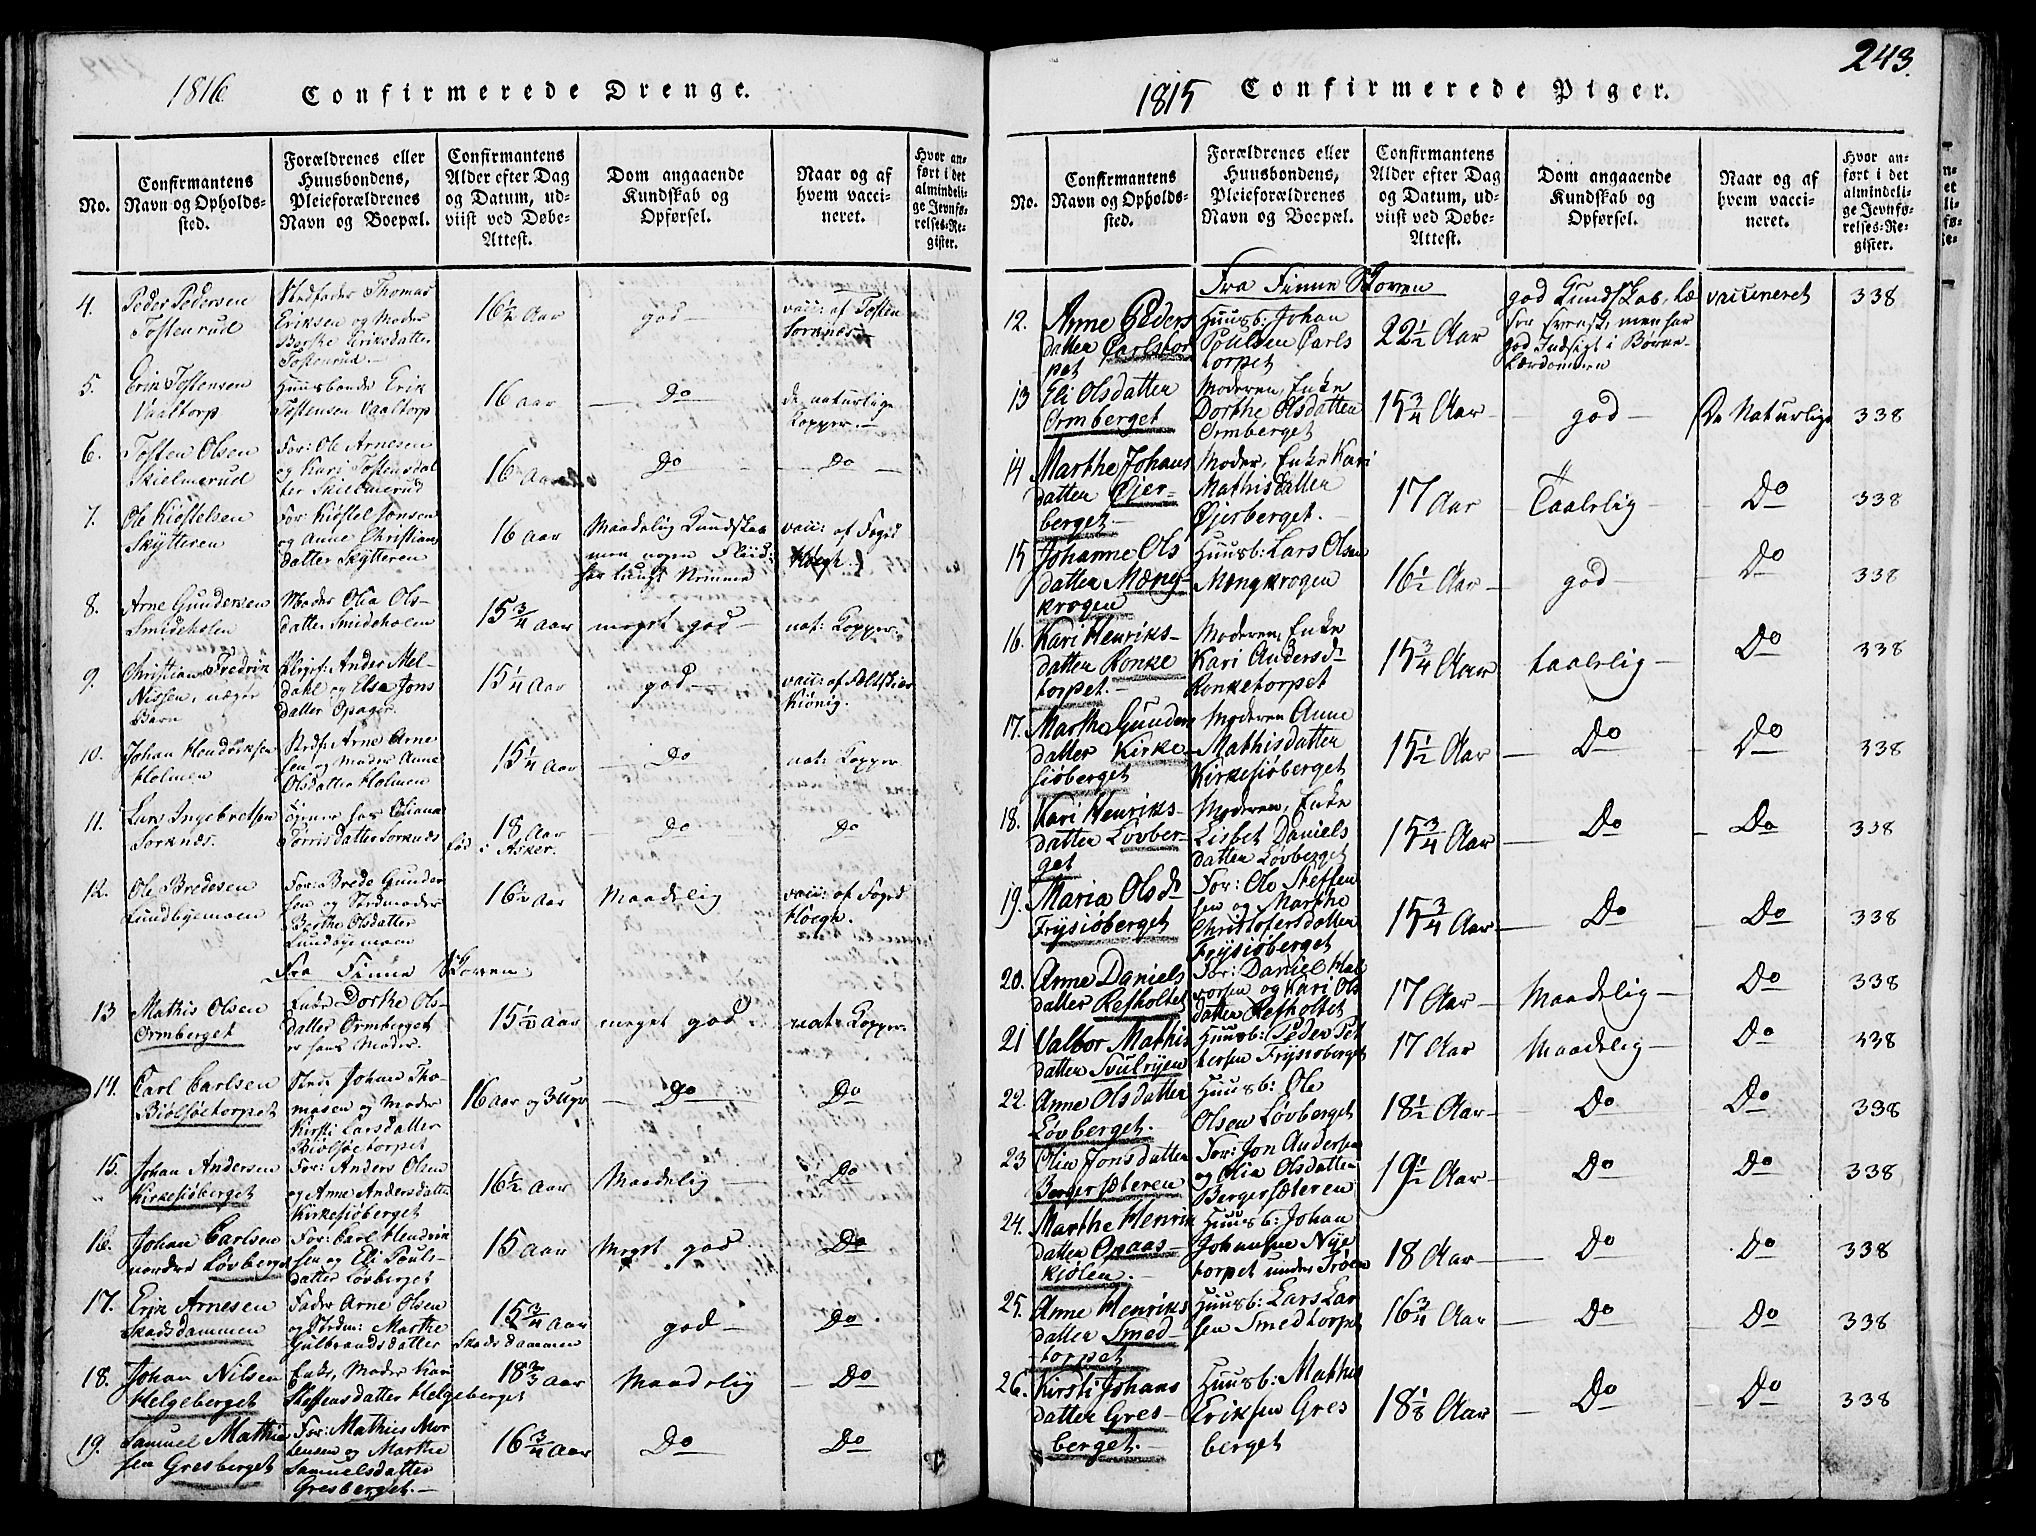 1816 Confirmerede Drenge.
No.
Confirmantens
Navn og Opholds-
sted.
Forældrenes eller
Huusbondens,
Pleieforældrenes
Navn og Boepæl.
Confirmantens
Alder efter Dag
og Datum, ud-
viist ved Døbe-
Attest.
Dom angaaende
Kundskab og
Opførsel.
Naar og af
hvem vacci-
neret.
Hvor an-
ført i det
almindeli-
ge Jevnfø-
relses-Re-
gister.
4.
Peder Pedersen
Tostenrud
Stedfader Thomas
Eriksen og Moder
Berthe Eriksdatter
Tostenrud
16½ Aar
god
vacc: af Tosten
Sorknæs
5.
Erik Tostensen
Vaaltorp
Huusbonde Erik
Tostensen Vaaltorp
16 aar
Do
de naturlige
Kopper.
6.
Tosten Olsen
Skielmerud
For: Ole Arnesen
og Kari Tostensdat
ter Skielmerud
16 Aar
Do
Do
7.
Ole Kiøstelsen
Skytteren
For: Kiøstel Jonsen
og Anne Christians
datter Skytteren
16 Aar
Maadelig Kundskab
men nogen Fliid:
har langt Nemme
vacc: af Foged
Høegh.
8.
Arne Gundersen
Smideholen
Moder Olia Ols-
datter Smideholen
15¾ Aar
meget god
nat: Kopper
9.
Christian Fredrik
Nissen, uægte
Barn
Pleief: Ander Mel-
dahl og Else Jons
datter Opager.
15¼ Aar
god
vacc: af Feltskier
Kiønig.
10.
Johan Hendriksen
Holmen
Stedf: Arne Arne
sen og Moder Anne
Olsdatter Holmen
15¼ Aar
Do
nat: Kopper
11.
Lars Ingebretsen
Sorknæs.
tiener hos Oliana
Torrisdatter Sorknæs
18 Aar
fød i Asker.
Do
Do
12.
Ole Bredesen
Lundbyemoen
For: Brede Gunder
sen og Stedmoder
Berthe Olsdatter
Lundbyemoen
16½ Aar
Maadelig
vacc: af Foged
Høegh.
Fra Finne Skoven
13
Mathis Olsen
Ormberget
Enke Dorthe Ols-
datter Ormberget
er hans Moder.
15½ Aar
meget god
nat: Kopper
14.
Carl Carlsen
Biølsøetorpet
Stedf: Johan Tho-
masen og Moder
Kirsti Larsdatter
Biølsøetorpet
16 Aar og 3 Ugr
Do
Do
15.
Johan Andersen
Kirkesiøberget
For: Anders Olsen
og Anne Andersdatter
Kirkesiøberget
16½ Aar
Maadelig
Do
16.
Johan Carlsen
nordre Løvberget
For: Carl Hendrik
sen og Eli Pouls-
datter Løvberget
15 Aar
Meget god
Do
17.
Erik Arnesen
Skadsdammen
Fader Arne Olsen
og Stedm: Marthe
Gulbrandsdatter
Skadsdammen
15¾ Aar
god
Do
18.
Johan Nilsen
Helgeberget
Enke, Moder Kari
Steffensdatter Helgeberget
18⅔ Aar
Maadelig
Do
19.
Samuel Mathis
sen Gresberget
For: Mathis Mor
tensen og Marthe
Samuelsdatter
Gresberget.
16¾ Aar
Do
Do
243.
1815 Confirmerede Piger.
No.
Confirmantens
Navn og Opholds-
sted.
Forældrenes eller
Huusbondens,
Pleieforældrenes
Navn og Boepæl.
Confirmantens
Alder efter Dag
og Datum, ud-
viist ved Døbe-
Attest.
Dom angaaende
Kundskab og
Opførsel.
Naar og af
hvem vacci-
neret.
Hvor an-
ført i det
almindeli-
ge Jevnfø-
relses-Re-
gister.
Fra Finne Skoven
12.
Anne Peders
datter Carlstor
pet
Huusb: Johan
Poulsen Carls
torpet
22½ Aar
god Kundskab, læ
ser svensk, men har
god Indsigt i Børne-
Lærdommen
vaccineret
338
13
Eli Olsdatter
Ormberget
Moderen, Enke
Dorthe Olsdatter
Ormberget
15¾ Aar
god
De Naturlige
338
14
Marthe Johans
datter Øjer-
berget
Moder, Enke Kari
Mathisdatter
Øjerberget.
17 Aar
Taalelig
Do
338
15
Johanne Ols
datter Mæng-
krogen
Huusb: Lars Olsen
Mængkrogen
16½ Aar
god
Do
338
16.
Kari Henriks-
datter Ronke
torpet.
Moderen, Enke
Kari Andersdr
Ronketorpet
15¾ Aar
taalelig
Do
338
17.
Marthe Gunders
datter Kirke-
siøberget
Moderen Anne
Mathisdatter
Kirkesiøberget
15½ Aar
Do
Do
338
18.
Kari Henriks-
datter Løvber-
get
Moderen, Enke
Lisbet Daniels
datter Løvberget
15¾ Aar
Do
Do
338
19.
Maria Olsdr
Frysiøberget
For: Ole Steffen
sen og Marthe
Christofersdatter
Frysiøberget
15¾ Aar
Do
Do
338
20.
Anne Daniels
datter Refholtet
For: Daniel Hal
vorsen og Kari Ols
datter Refholtet
17 Aar
Maadelig
Do
338
21
Valbor Mathis
datter Svulryen
Huusb: Peder Pet
tersen Frysiøberget
17 Aar
Maadelig
Do
338
22.
Anne Olsdatter
Løvberget.
Huusb: Ole
Olsen Løvberget
18½ Aar
Do
Do
338
23
Olia Jonsdatter
Bergersæteren
For: Jon Andersen
og Olia Olsdatter
Bergersæteren
19½ Aar
Do
Do
338
24.
Marthe Henrik
datter Opaas
kjølen.
Huusb: Johan
Johansen Nye
torpet under Trøen
18 Aar
Do
Do
338
25.
Anne Henriks
datter Smed-
torpet
Huusb: Lars Lar
sen Smedtorpet
16¾ Aar
Do
Do
338
26.
Kirsti Johans
datter Gres-
berget.
Huusb: Mathis
Eriksen Gres
berget
18⅛ Aar
Do
Do
338